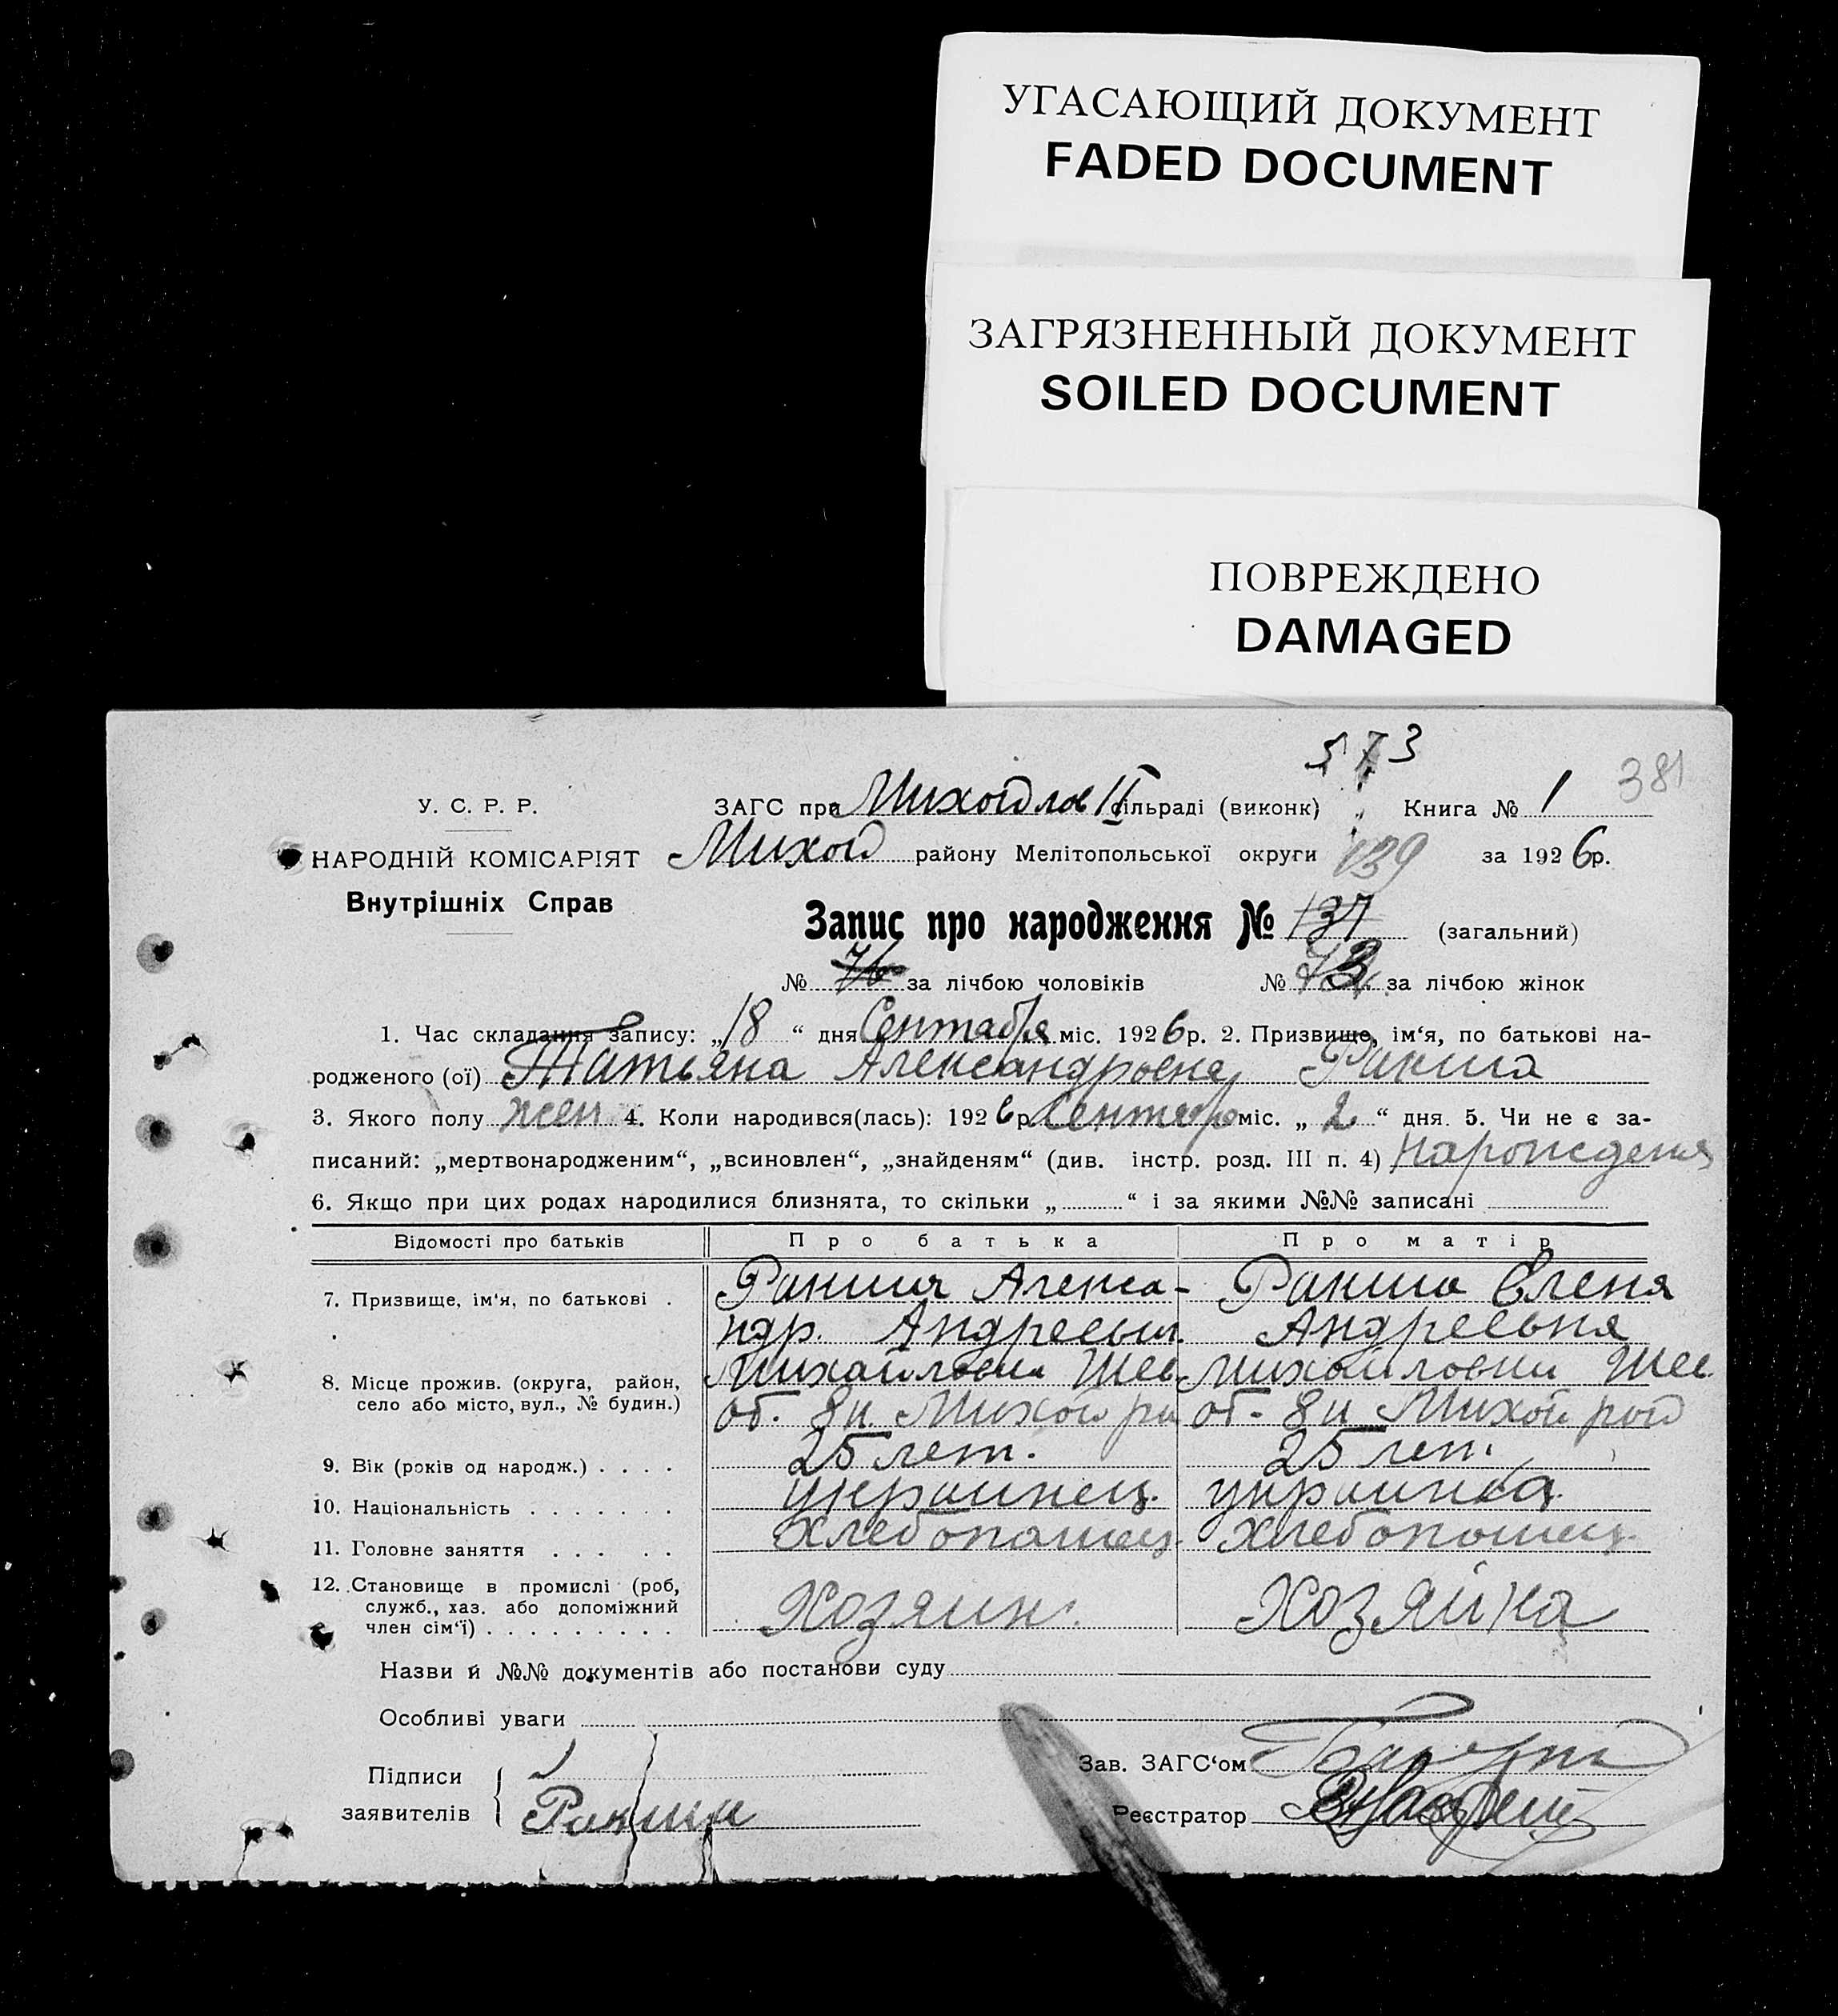 УГАСАЮЩИЙ ДОКУМЕНТ
FADED DOCUMENT
ЗАГРЯЗНЕННЫЙ ДОКУМЕНТ
SOILED DOCUMENT
ПОВРЕЖДЕНО
DAMAGED
573
381
У. С. Р. Р. ЗАГС при Михойлов II сільраді (виконк) Книга № 1
НАРОДНІЙ КОМІСАРІЯТ Михой району Мелітопольської округи 139 за 1926р.
Внутрішніх Справ
Запис про народження № 137 (загальний)
№ за лічбою чоловіків № 73 за лічбою жінок
1. Час складання запису: „18“ дня Сентабря міс. 1926р. 2. Призвище, ім‘я, по батькові на-
родженого (ої) Татьяна Александровна Ракша
3. Якого полу жен 4. Коли народився(лась): 1926р. Сентября міс. „2“ дня. 5. Чи не є за-
писаний: „мертвонародженим“, „всиновлен“, „знайденям“ (див. інстр. розд. III п. 4) нарождения
6. Якщо при цих родах народилися близнята, то скільки „ “ і за якими №№ записані
Відомості про батьків Про батька Про матір
7. Призвище, ім‘я, по батькові . Ракша Алекса- Ракша Елена
ндр. Андреевич Андреевна
8. Місце прожив. (округа, район, Михайловка Мел. Михайловка Мел.
село або місто, вул., № будин.) от. 8 и. Михой ра от. 8 и Михой рай
9. Вік (років од народж.) . . . . 25 лет. 25 лет.
10. Національність . . . . . . . украинец. украинка
11. Головне заняття . . . . . хлебопашец. хлебопашец.
12. Становище в промислі (роб,
служб., хаз. або допоміжний
член сім‘ї) . . . . . . . . . Хозяин. Хозяйка
Назви й №№ документів або постанови суду
Особливі уваги
Підписи Зав. ЗАГС‘ом
заявителів Ракша Реєстратор